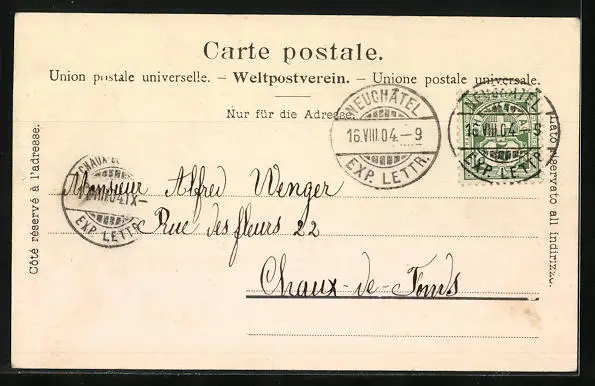 Carte postale.
Union postale universelle. – Weltpostverein. – Unione postale universale.
Nur für die Adresse
NEUCHÂTEL
16.VIII.04.–9
EXP. LETTR.
NEUCHÂTEL
16.VIII.04.–9
EXP. LETTR.
Côté réservé à l'adresse.
Lato riservato all indirizzo.
EXP. LETTR.
Monsieur Alfred Wenger
Rue des fleurs 22
Chaux-de-Fonds